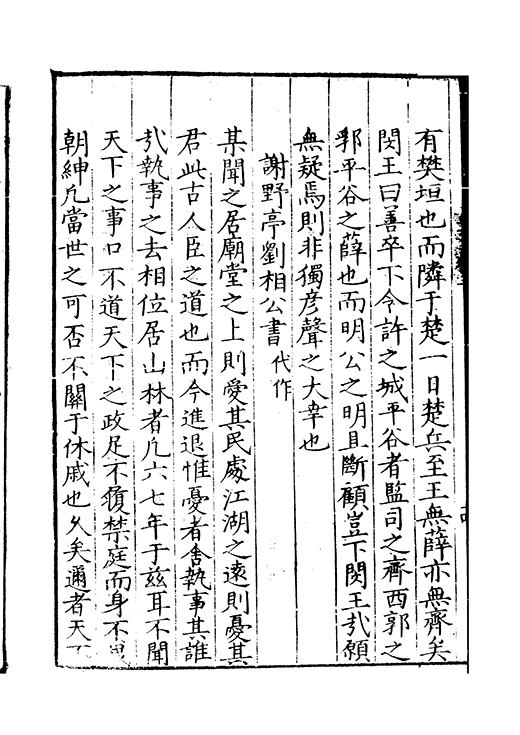 有樊垣也而隣于楚一日楚兵至王無薛亦無齊矣
閔王曰善卒下令許之城平谷者監司之齊西郭之
郛平谷之薛也而明公之明且斷顧豈下閔王㢤願
無疑焉則非獨彦聲之大幸也
謝野亭劉相公書代作
某聞之居廟堂之上則憂其民處江湖之遠則憂其
君此古人臣之道也而今進退惟憂者舍執事其誰
㢤執事之去相位居山林者凢六七年于兹耳不聞
天下之事口不道天下之政足不履禁庭而身不
朝紳凢當世之可否不關于休戚也久矣邇者天下